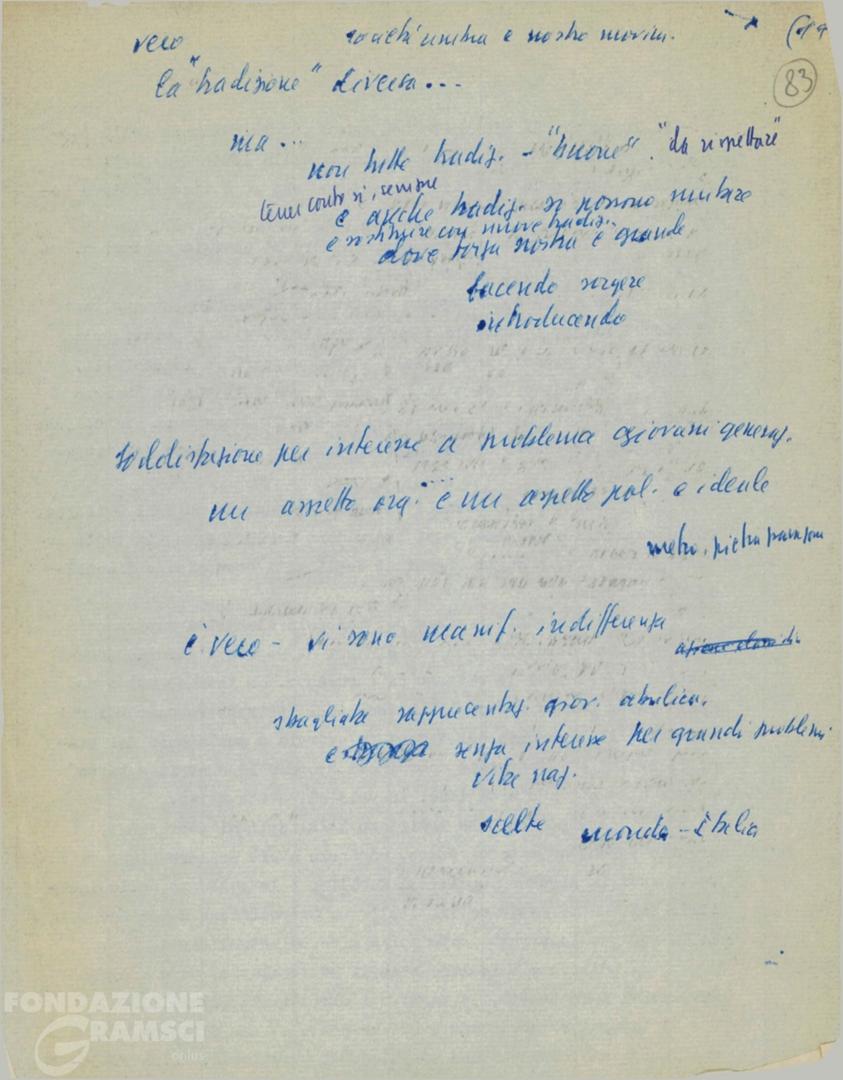 vero società umbra e nostro movim.
(19
83
la "tradizione" diversa...
ma...
non tutte tradiz. - "buone". "da rispettare"
tener conto sì, sempre
e anche tradiz. si possono mutare
e sostituire con nuove tradiz.
dove forza nostra è grande
facendo sorgere
introducendo
Soddisfazione per interesse a problema giovani generaz.
un aspetto org. ... e un aspetto pol. e ideale
metro, pietra paragone
è vero - vi sono manif. indifferenza
sbagliate rappresentaz. giov. abulica,
e senza interesse per grandi problemi
vita naz.
scelte mondo - Italia
FONDAZIONE
GRAMSCI
onlus